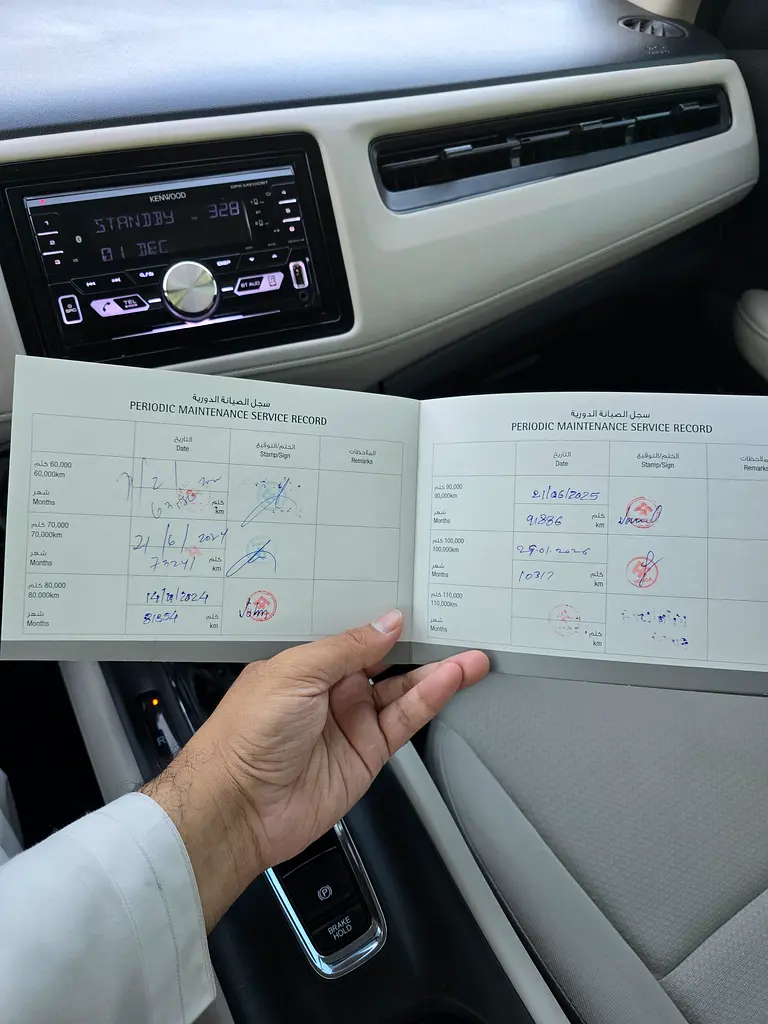 KENWOOD
STANDBY 328
01 DEC
1
2
3
4
5
6
SRC
TEL
DISP
BT AUD
سجل الصيانة الدورية
PERIODIC MAINTENANCE SERVICE RECORD
التاريخ
Date
الختم/التوقيع
Stamp/Sign
الملاحظات
Remarks
60,000 كلم
60,000km
شهر
Months
كلم
km
70,000 كلم
70,000km
21/6/2024
شهر
Months
73241
كلم
km
80,000 كلم
80,000km
شهر
Months
81354
كلم
km
سجل الصيانة الدورية
PERIODIC MAINTENANCE SERVICE RECORD
التاريخ
Date
الختم/التوقيع
Stamp/Sign
Remarks
90,000 كلم
90,000km
21/06/2025
شهر
Months
91886
كلم
km
100,000 كلم
100,000km
29.01.2026
شهر
Months
10317
كلم
km
110,000 كلم
110,000km
شهر
Months
كلم
km
R
BRAKE
HOLD